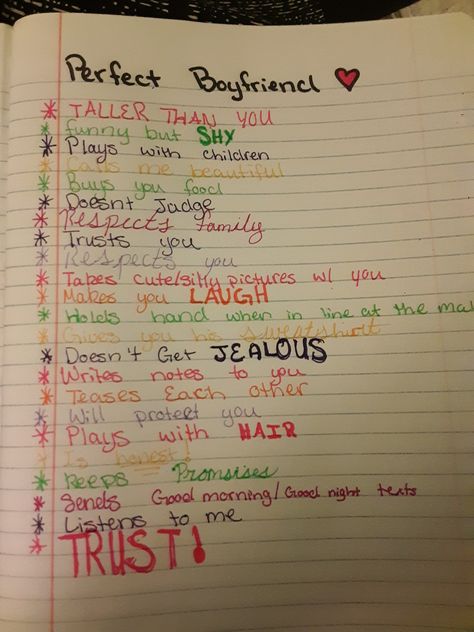 Perfect Boyfriend ♥
* TALLER THAN YOU
* funny but SHY
* Plays with children
* Calls me beautiful
* Buys you food
* Doesnt Judge
* Respects family
* Trusts you
* Respects you
* Takes cute/silly pictures w/ you
* Makes you LAUGH
* Holds hand when in line at the mal
* Gives you his sweatshirt
* Doesn't Get JEALOUS
* Writes notes to you
* Teases Each other
* Will protect you
* Plays with HAIR
* Is honest!
* Keeps Promsises
* Sends Good morning/Good night texts
* Listens to me
* TRUST!